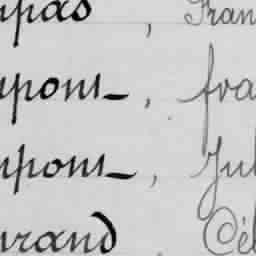 upas, Fran
upont, fra
upont, Jul
urand, Cél